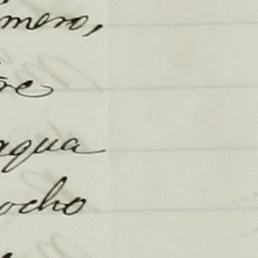 mero,
re
agua
ocho